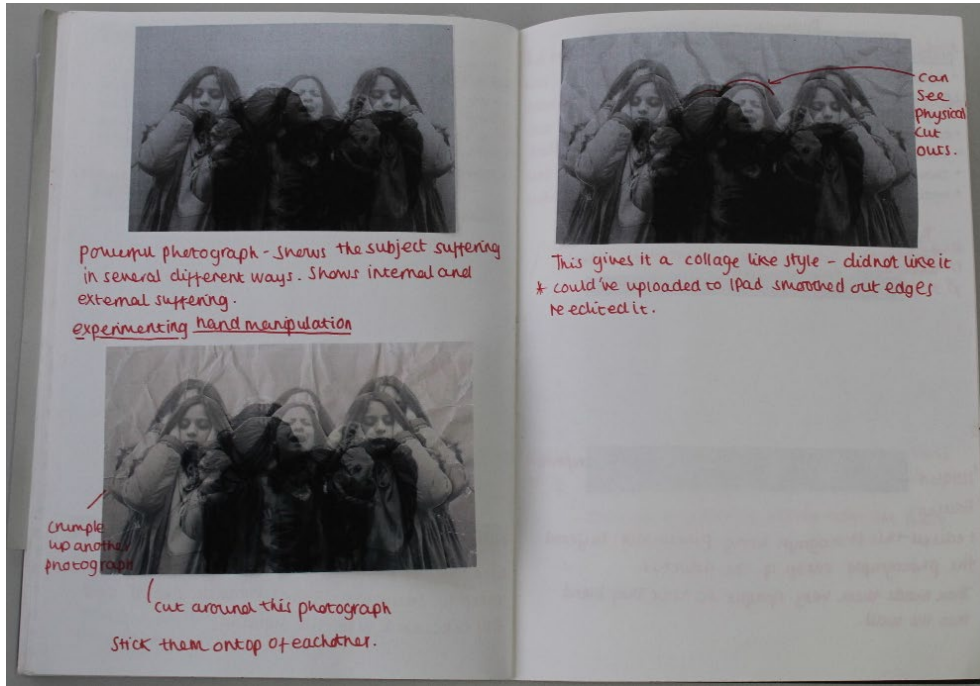 Powerful photograph - shows the subject suffering
in several different ways. Shows internal and
external suffering.
experimenting hand manipulation
crumple
up another
photograph
cut around this photograph
Stick them ontop of eachother.
can
see
physical
cut
outs.
This gives it a collage like style - didnot like it
* could've uploaded to IPad smoothed out edges
re edited it.